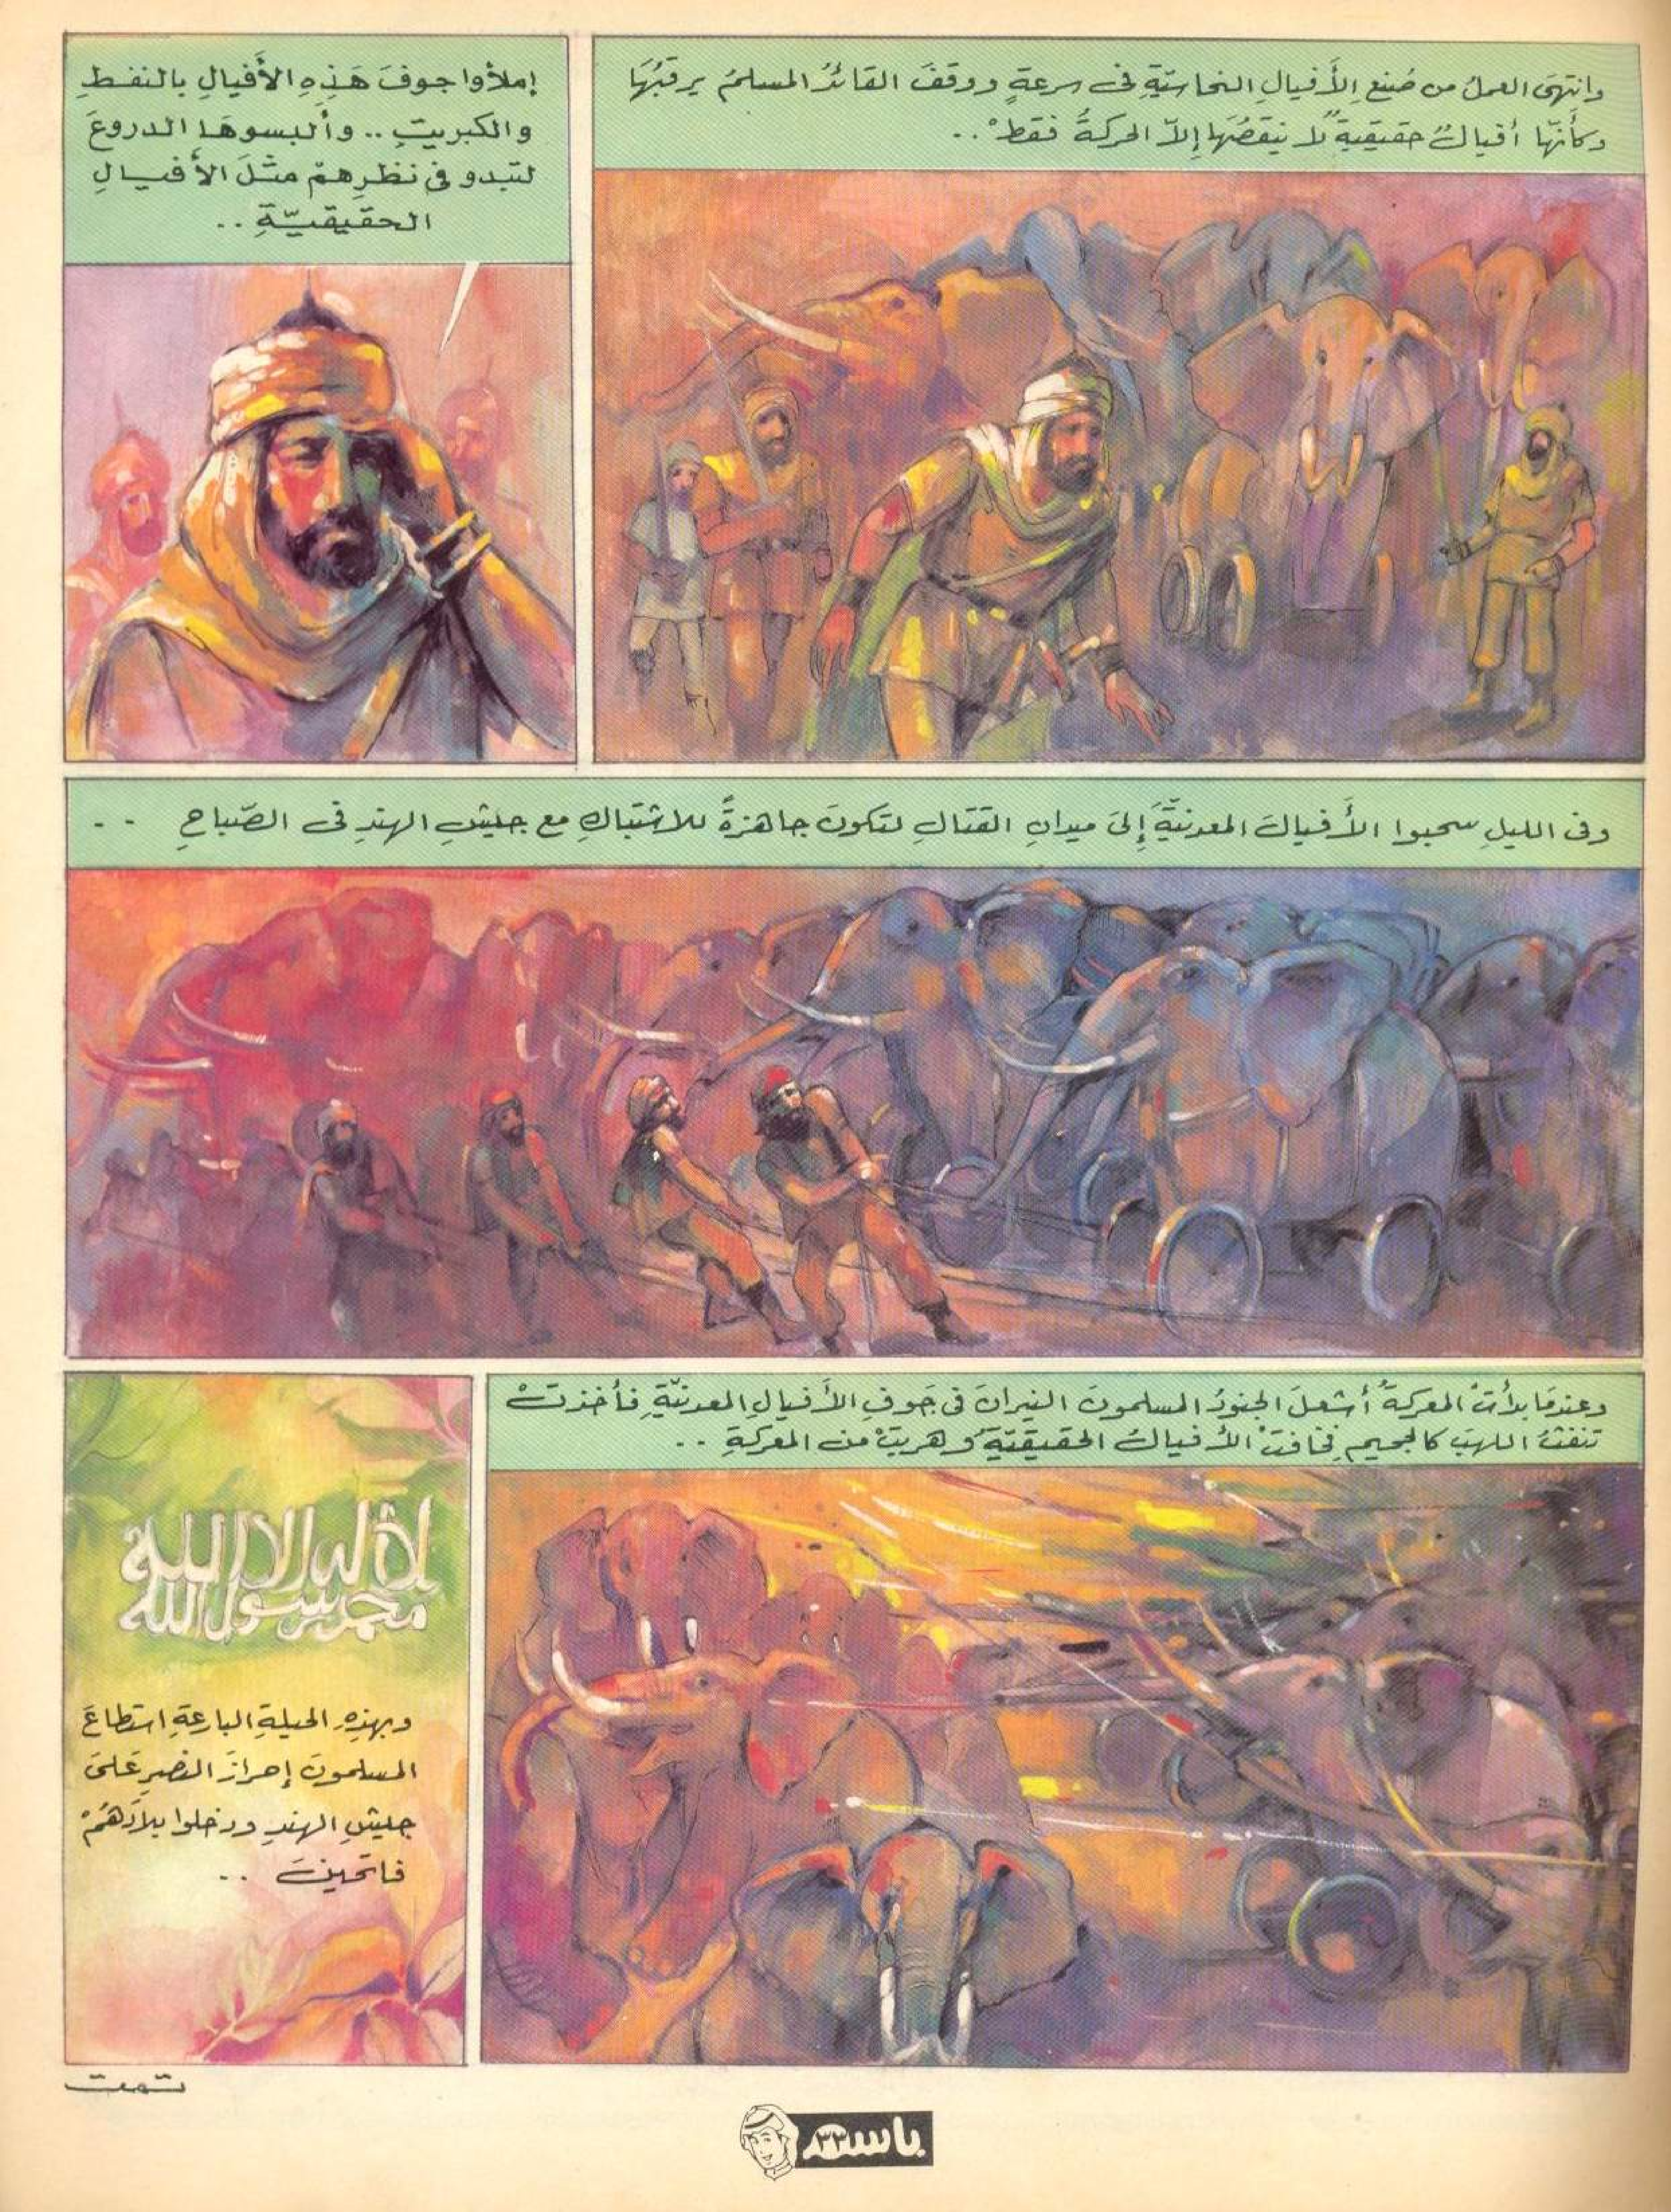 وانتهَى العملُ من صُنعِ الأَفيالِ النحاسيّةِ فى سرعةٍ ووقفَ القائدُ المسلمُ يرقبُهَا
وكأنّها أفيالٌ حقيقيةٌ لا ينقصُهَا إلاّ الحركةُ فقطْ ..
إملأوا جوفَ هَذِهِ الأَفيالِ بالنفطِ
والكبريتِ .. وألبسوهَا الدروعَ
لتبدو فى نظرِهمْ مثلَ الأفيالِ
الحقيقيّةِ ..
وفى الليلِ سحبوا الأَفيالَ المعدنيّةَ إلَى ميدانِ القتالِ لتكونَ جاهزةً للاشتباكِ مع جيشِ الهندِ فى الصّباحِ ..
وعندمَا بدأتْ المعركةُ أشعلَ الجنودُ المسلمونَ النيرانَ فى جَوفِ الأَفيالِ المعدنيّةِ فأخذتْ
تنفثُ اللهبَ كالجحيمِ فخافتْ الأَفيالُ الحقيقيّةُ وهربتْ من المعركةِ ..
لا إله إلا الله
محمد رسول الله
وبهذِهِ الحيلةِ البارعةِ استطاعَ
المسلمونَ إحرازَ النصرِ عَلىَ
جيشِ الهندِ ودخلوا بلادَهُمْ
فاتحينَ ..
تمت
باسم ٣٣